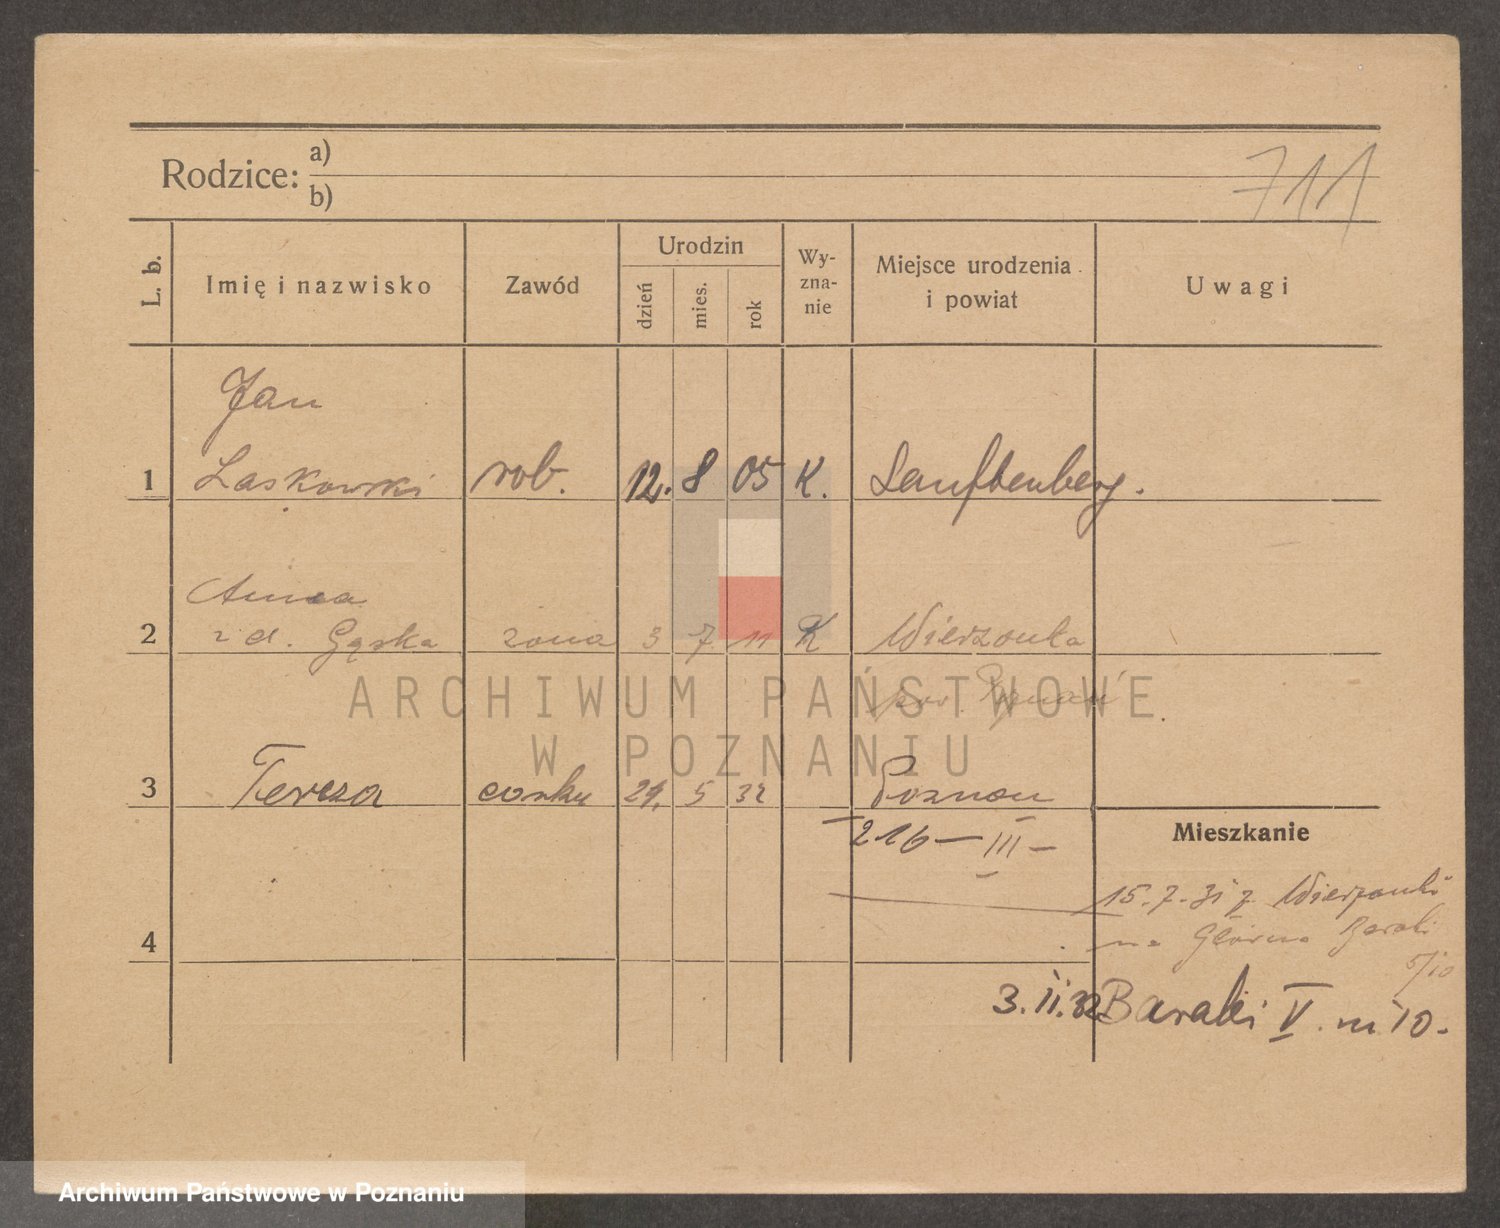 Rodzice: a)
b)
711
L. b.
Imię i nazwisko
Zawód
Urodzin
dzień
mies.
rok
Wy-
zna-
nie
Miejsce urodzenia
i powiat
Uwagi
Jan
1 Laskowski rob. 12. 8 05 K. Lauftenberg.
Anna
2 z d. Gąska zona 3 7 11 K Wierzonka
pow. Poznań
3 Tereza corka 29. 5 32 Poznan
216 — III —
Mieszkanie
15.7.31 z Wierzonki
na Główna Baraki
5/10
4
3.II.32 Baraki V. m 10.
ARCHIWUM PAŃSTWOWE
W POZNANIU
Archiwum Państwowe w Poznaniu